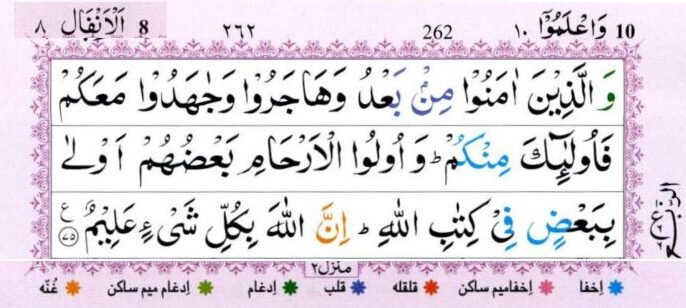 وَاعْلَمُوْٓا 10 ١٠ 262 ٢٦٢ 8 اَلْاَنْفَال ٨
وَالَّذِيْنَ اٰمَنُوْا مِنْۢ بَعْدُ وَهَاجَرُوْا وَجٰهَدُوْا مَعَكُمْ
فَاُولٰٓئِكَ مِنْكُمْ ؕ وَ اُولُوا الْاَرْحَامِ بَعْضُهُمْ اَوْلٰى
بِبَعْضٍ فِيْ كِتٰبِ اللّٰهِ ؕ اِنَّ اللّٰهَ بِكُلِّ شَيْءٍ عَلِيْمٌ ۝٧٥ ع
الربع
منزل٢
اِخفا اِخفامیم ساکن قلقله قلب اِدغام اِدغام میم ساکن غُنّه